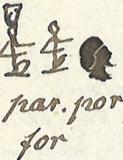 par. por
for